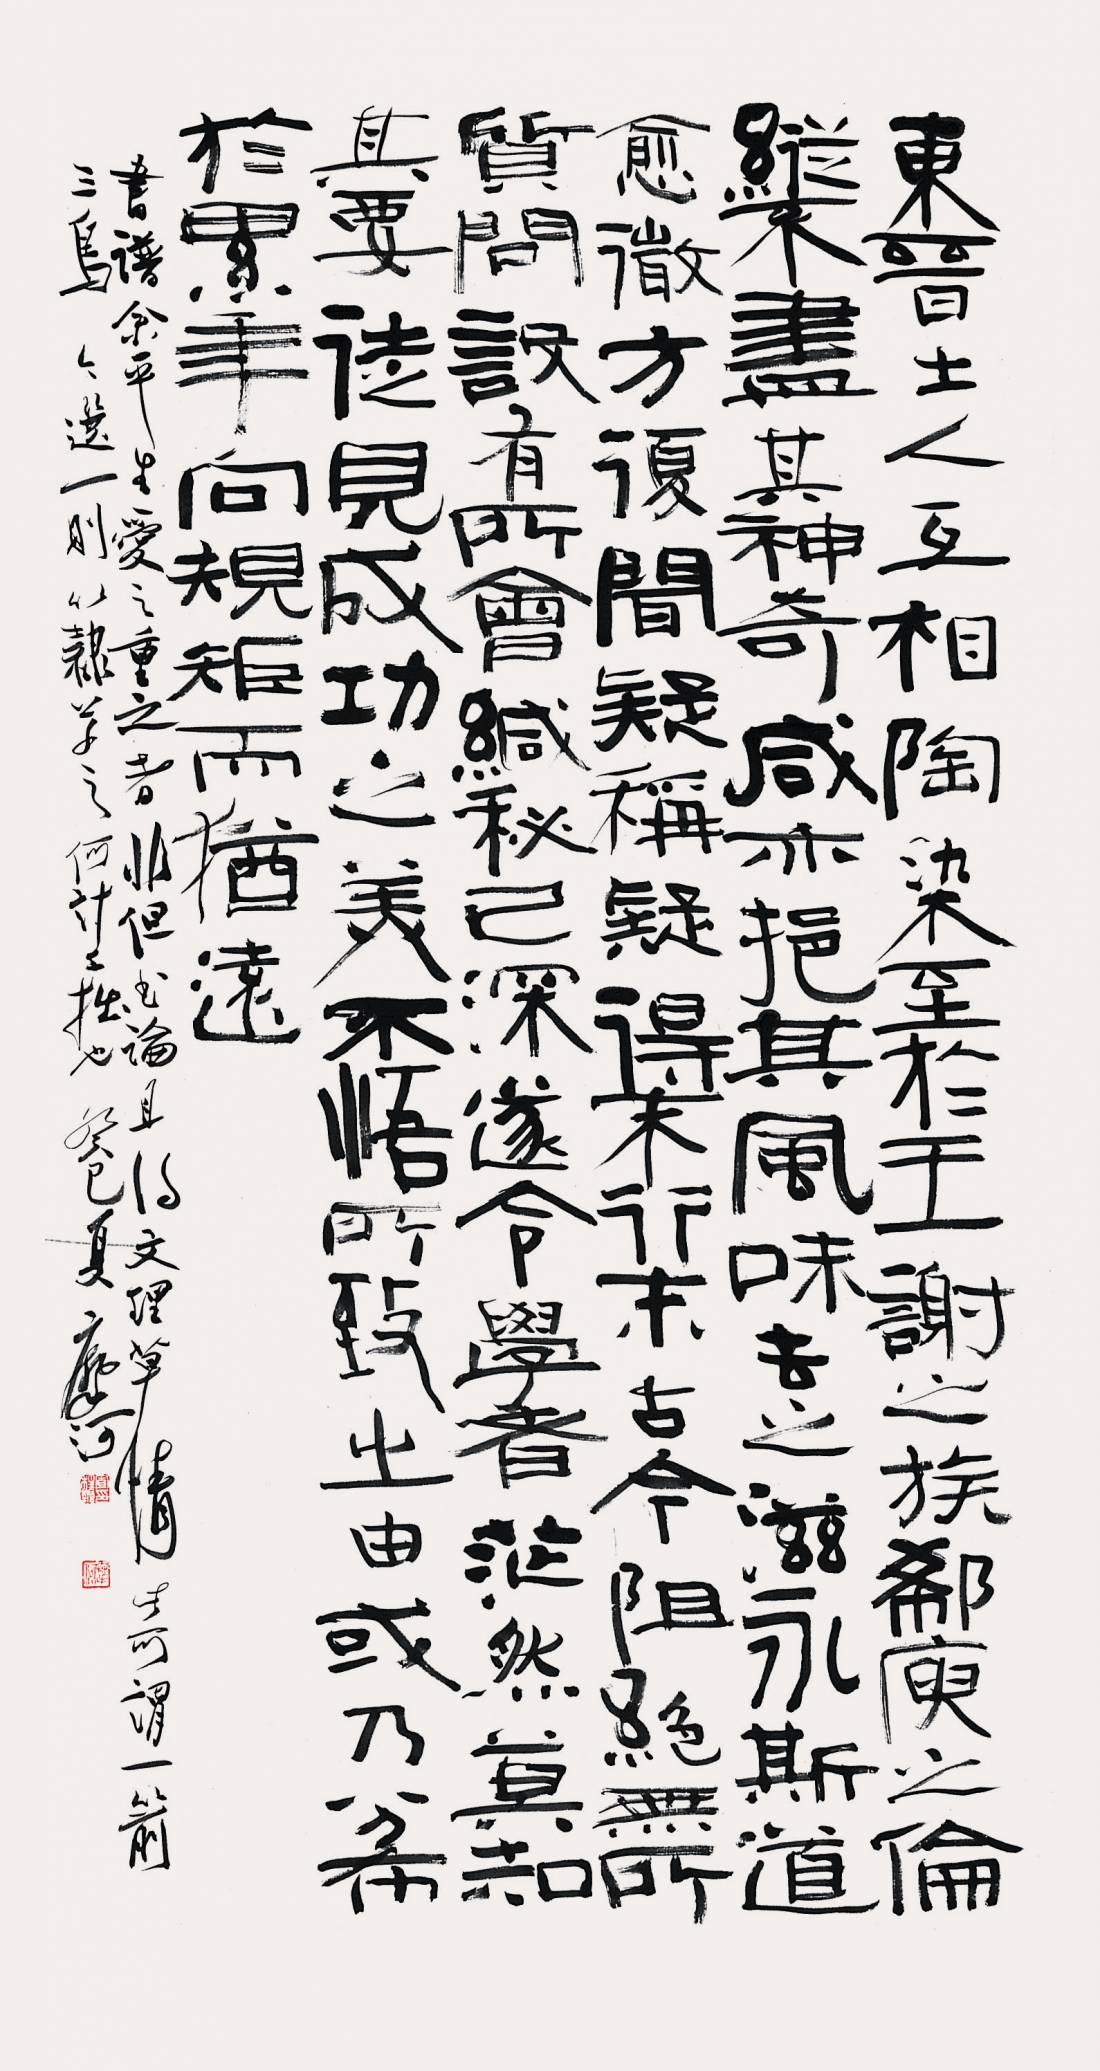 東晉士人互相陶染至於王謝之族郗庾之倫
縱不盡其神奇咸亦挹其風味去之滋永斯道
愈微方復聞疑稱疑得末行末古今阻絕無所
質問設有所會緘秘已深遂令學者茫然莫知
其要徒見成功之美不悟所致之由或乃分布
於累年向規矩而猶遠
書譜余平生愛之重之者非但書論且得文理草情 所謂一箭
三鳥今選一則以隸草之何計工拙也 癸巳夏 河